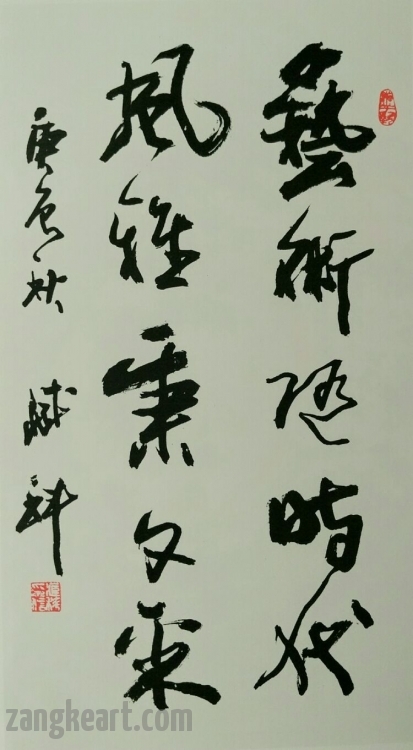 藝術隨時代
風雅秉文采
庚辰秋 斌科
zangkeart.com